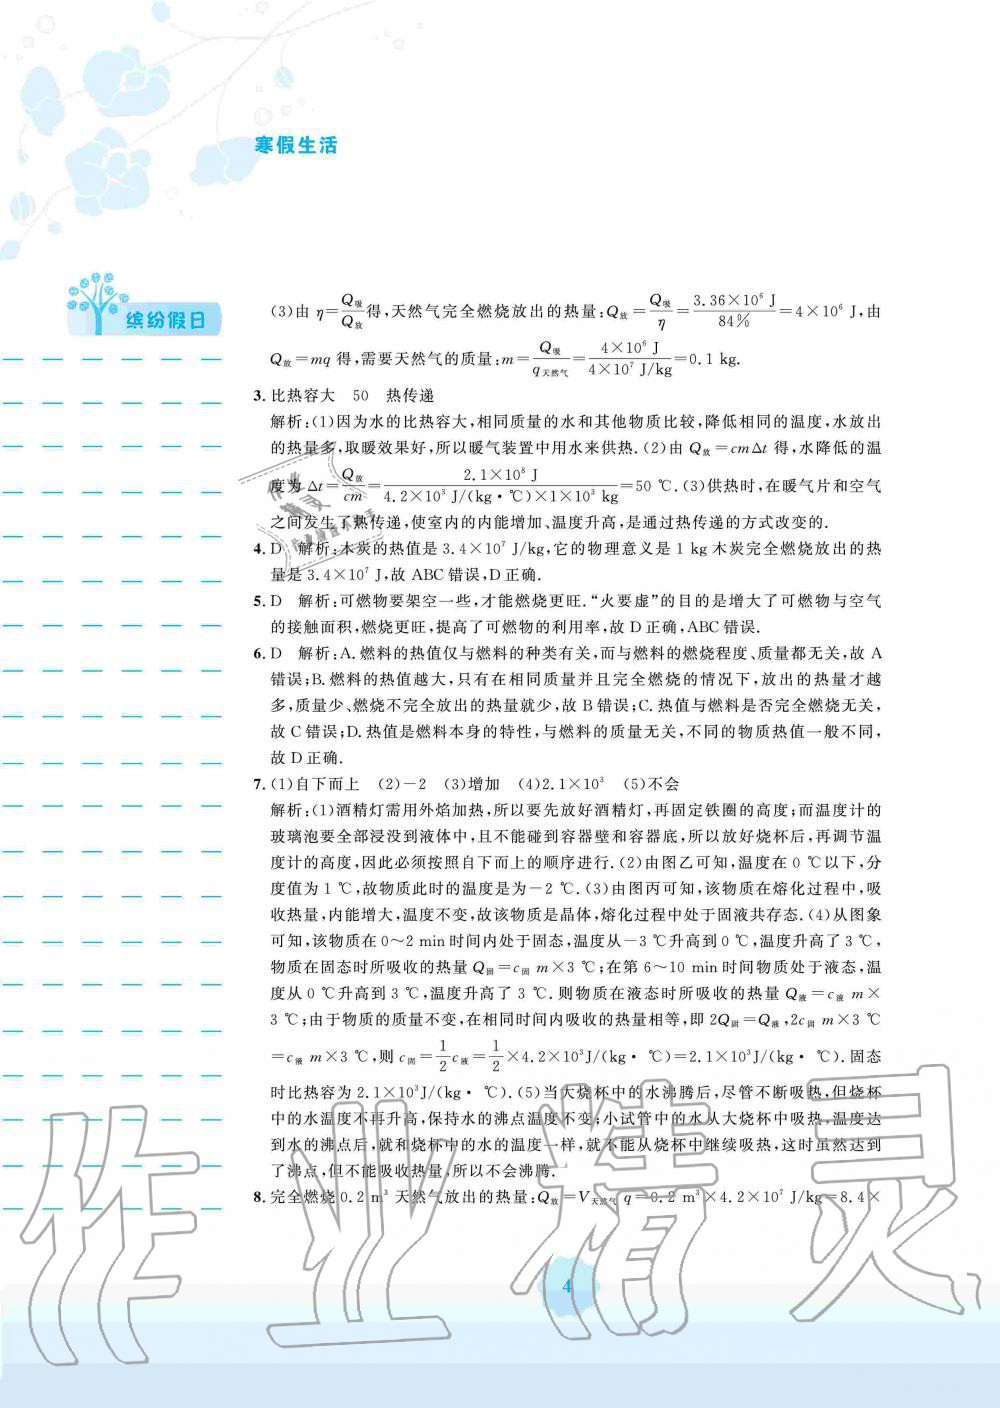 寒假生活
缤纷假日
(3)由 η=Q吸/Q放得,天然气完全燃烧放出的热量:Q放=Q吸/η=3.36×10⁶ J/84%=4×10⁶ J,由
Q放=mq 得,需要天然气的质量:m=Q吸/q天然气=4×10⁶ J/4×10⁷ J/kg=0.1 kg.
3. 比热容大 50 热传递
解析:(1)因为水的比热容大,相同质量的水和其他物质比较,降低相同的温度,水放出
的热量多,取暖效果好,所以暖气装置中用水来供热.(2)由 Q放=cmΔt 得,水降低的温
度为 Δt=Q放/cm=2.1×10⁸ J/4.2×10³ J/(kg·℃)×1×10³ kg=50 ℃.(3)供热时,在暖气片和空气
之间发生了热传递,使室内的内能增加、温度升高,是通过热传递的方式改变的.
4. D 解析:木炭的热值是 3.4×10⁷ J/kg,它的物理意义是 1 kg 木炭完全燃烧放出的热
量是 3.4×10⁷ J,故 ABC 错误,D 正确.
5. D 解析:可燃物要架空一些,才能燃烧更旺.“火要虚”的目的是增大了可燃物与空气
的接触面积,燃烧更旺,提高了可燃物的利用率,故 D 正确,ABC 错误.
6. D 解析:A. 燃料的热值仅与燃料的种类有关,而与燃料的燃烧程度、质量都无关,故 A
错误;B. 燃料的热值越大,只有在相同质量并且完全燃烧的情况下,放出的热量才越
多,质量少、燃烧不完全放出的热量就少,故 B 错误;C. 热值与燃料是否完全燃烧无关,
故 C 错误;D. 热值是燃料本身的特性,与燃料的质量无关,不同的物质热值一般不同,
故 D 正确.
7. (1)自下而上 (2)-2 (3)增加 (4)2.1×10³ (5)不会
解析:(1)酒精灯需用外焰加热,所以要先放好酒精灯,再固定铁圈的高度;而温度计的
玻璃泡要全部浸没到液体中,且不能碰到容器壁和容器底,所以放好烧杯后,再调节温
度计的高度,因此必须按照自下而上的顺序进行.(2)由图乙可知,温度在 0 ℃以下,分
度值为 1 ℃,故物质此时的温度是为-2 ℃.(3)由图丙可知,该物质在熔化过程中,吸
收热量,内能增大,温度不变,故该物质是晶体,熔化过程中处于固液共存态.(4)从图象
可知,该物质在 0~2 min 时间内处于固态,温度从-3 ℃升高到 0 ℃,温度升高了 3 ℃,
物质在固态时所吸收的热量 Q固=c固 m×3 ℃;在第 6~10 min 时间物质处于液态,温
度从 0 ℃升高到 3 ℃,温度升高了 3 ℃.则物质在液态时所吸收的热量 Q液=c液 m×
3 ℃;由于物质的质量不变,在相同时间内吸收的热量相等,即 2Q固=Q液,2c固 m×3 ℃
=c液 m×3 ℃,则 c固=1/2c液=1/2×4.2×10³J/(kg· ℃)=2.1×10³J/(kg· ℃).固态
时比热容为 2.1×10³J/(kg· ℃).(5)当大烧杯中的水沸腾后,尽管不断吸热,但烧杯
中的水温度不再升高,保持水的沸点温度不变;小试管中的水从大烧杯中吸热,温度达
到水的沸点后,就和烧杯中的水的温度一样,就不能从烧杯中继续吸热,这时虽然达到
了沸点,但不能吸收热量,所以不会沸腾.
8. 完全燃烧 0.2 m³ 天然气放出的热量:Q放=V天然气 q=0.2 m³×4.2×10⁷ J/kg=8.4×
4
作业精灵